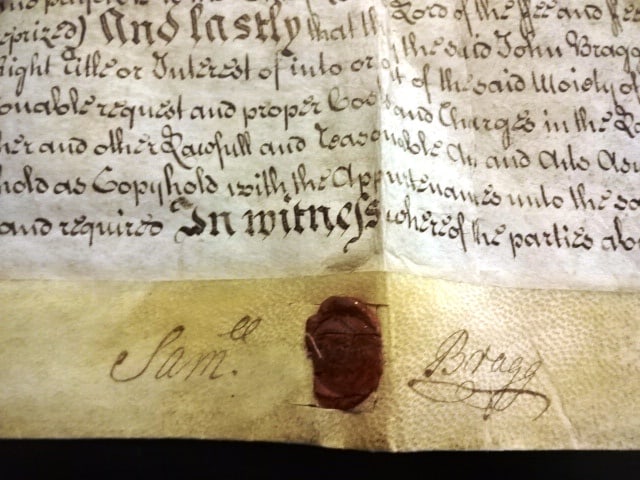 Lord of the Fee and
eprized) And lastly that the said John Bragg
Right Title or Interest of into or out of the said Moiety of
onable request and proper Costs and Charges in the
her and other Lawfull and Reasonable Act and Acts
hold as Copyhold with the Appurtenances unto the
and required In witness whereof the parties abo
Sam.ll Bragg